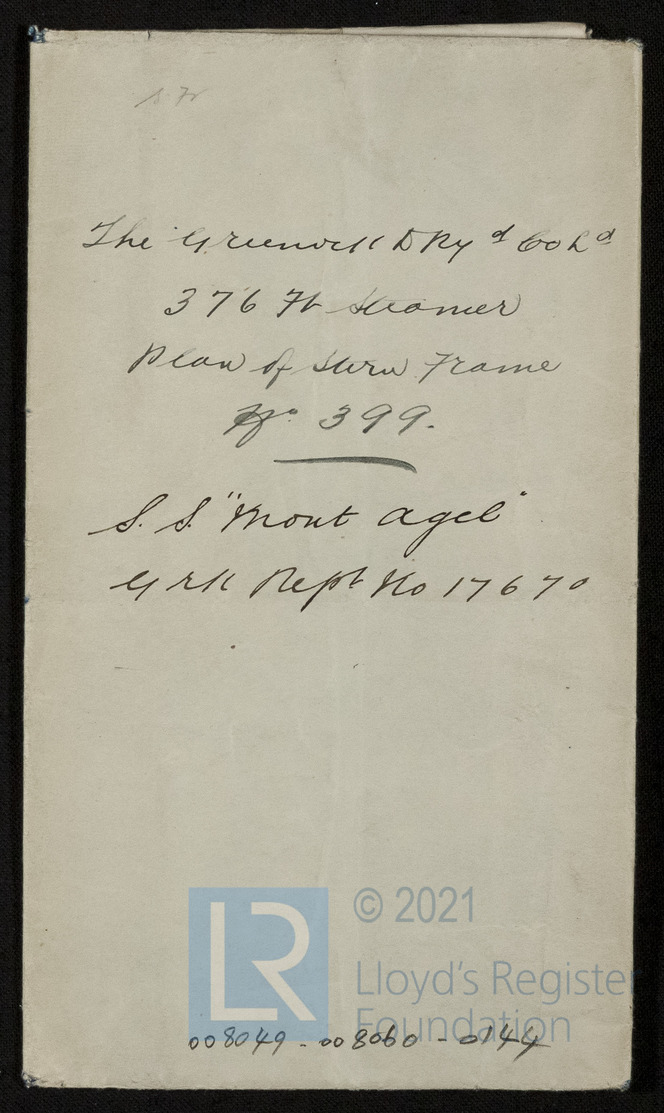 S. Fr
The Greenock D Ry d Co Ld
376 Ft Steamer
Plan of Stern Frame
No. 399.
S. S. "Mont Agel"
Grk Rept No 17670
© 2021
LR
Lloyd's Register
Foundation
008049-008060-0144